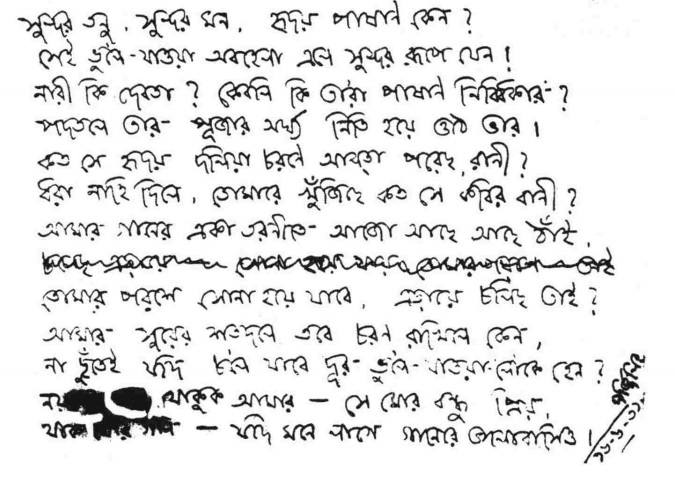 সুন্দর তনু, সুন্দর মন, হৃদয় পাষাণ কেন?
সেই ভুলে-যাওয়া অবহেলা এল সুন্দর রূপে যেন!
নারী কি দেবতা? কেবলি কি তারা পাষাণ নির্ব্বিকার?
পদতলে তার পূজার অর্ঘ্য নিতি হয়ে ওঠে ভার।
কত সে হৃদয় দলিয়া চরণে আল্‌তা পরেছ, রানী?
ধরা নাহি দিলে, তোমারে খুঁজিছে কত সে কবির বাণী?
আমার গানের একা তরণীতে আজো আছে আছে ঠাঁই,
তোমার পরশে সোনা হয়ে যাবে, এড়ায়ে চলিছ তাই?
আমার সুরের শতদলে তবে চরণ রাখিলে কেন,
না ছুঁতেই যদি চলি যাবে দূর ভুলে-যাওয়া-লোকে হেন?
থাকুক আমার — সে মোর বন্ধু প্রিয়,
— যদি মনে লাগে গানেরে ভালোবাসিও।